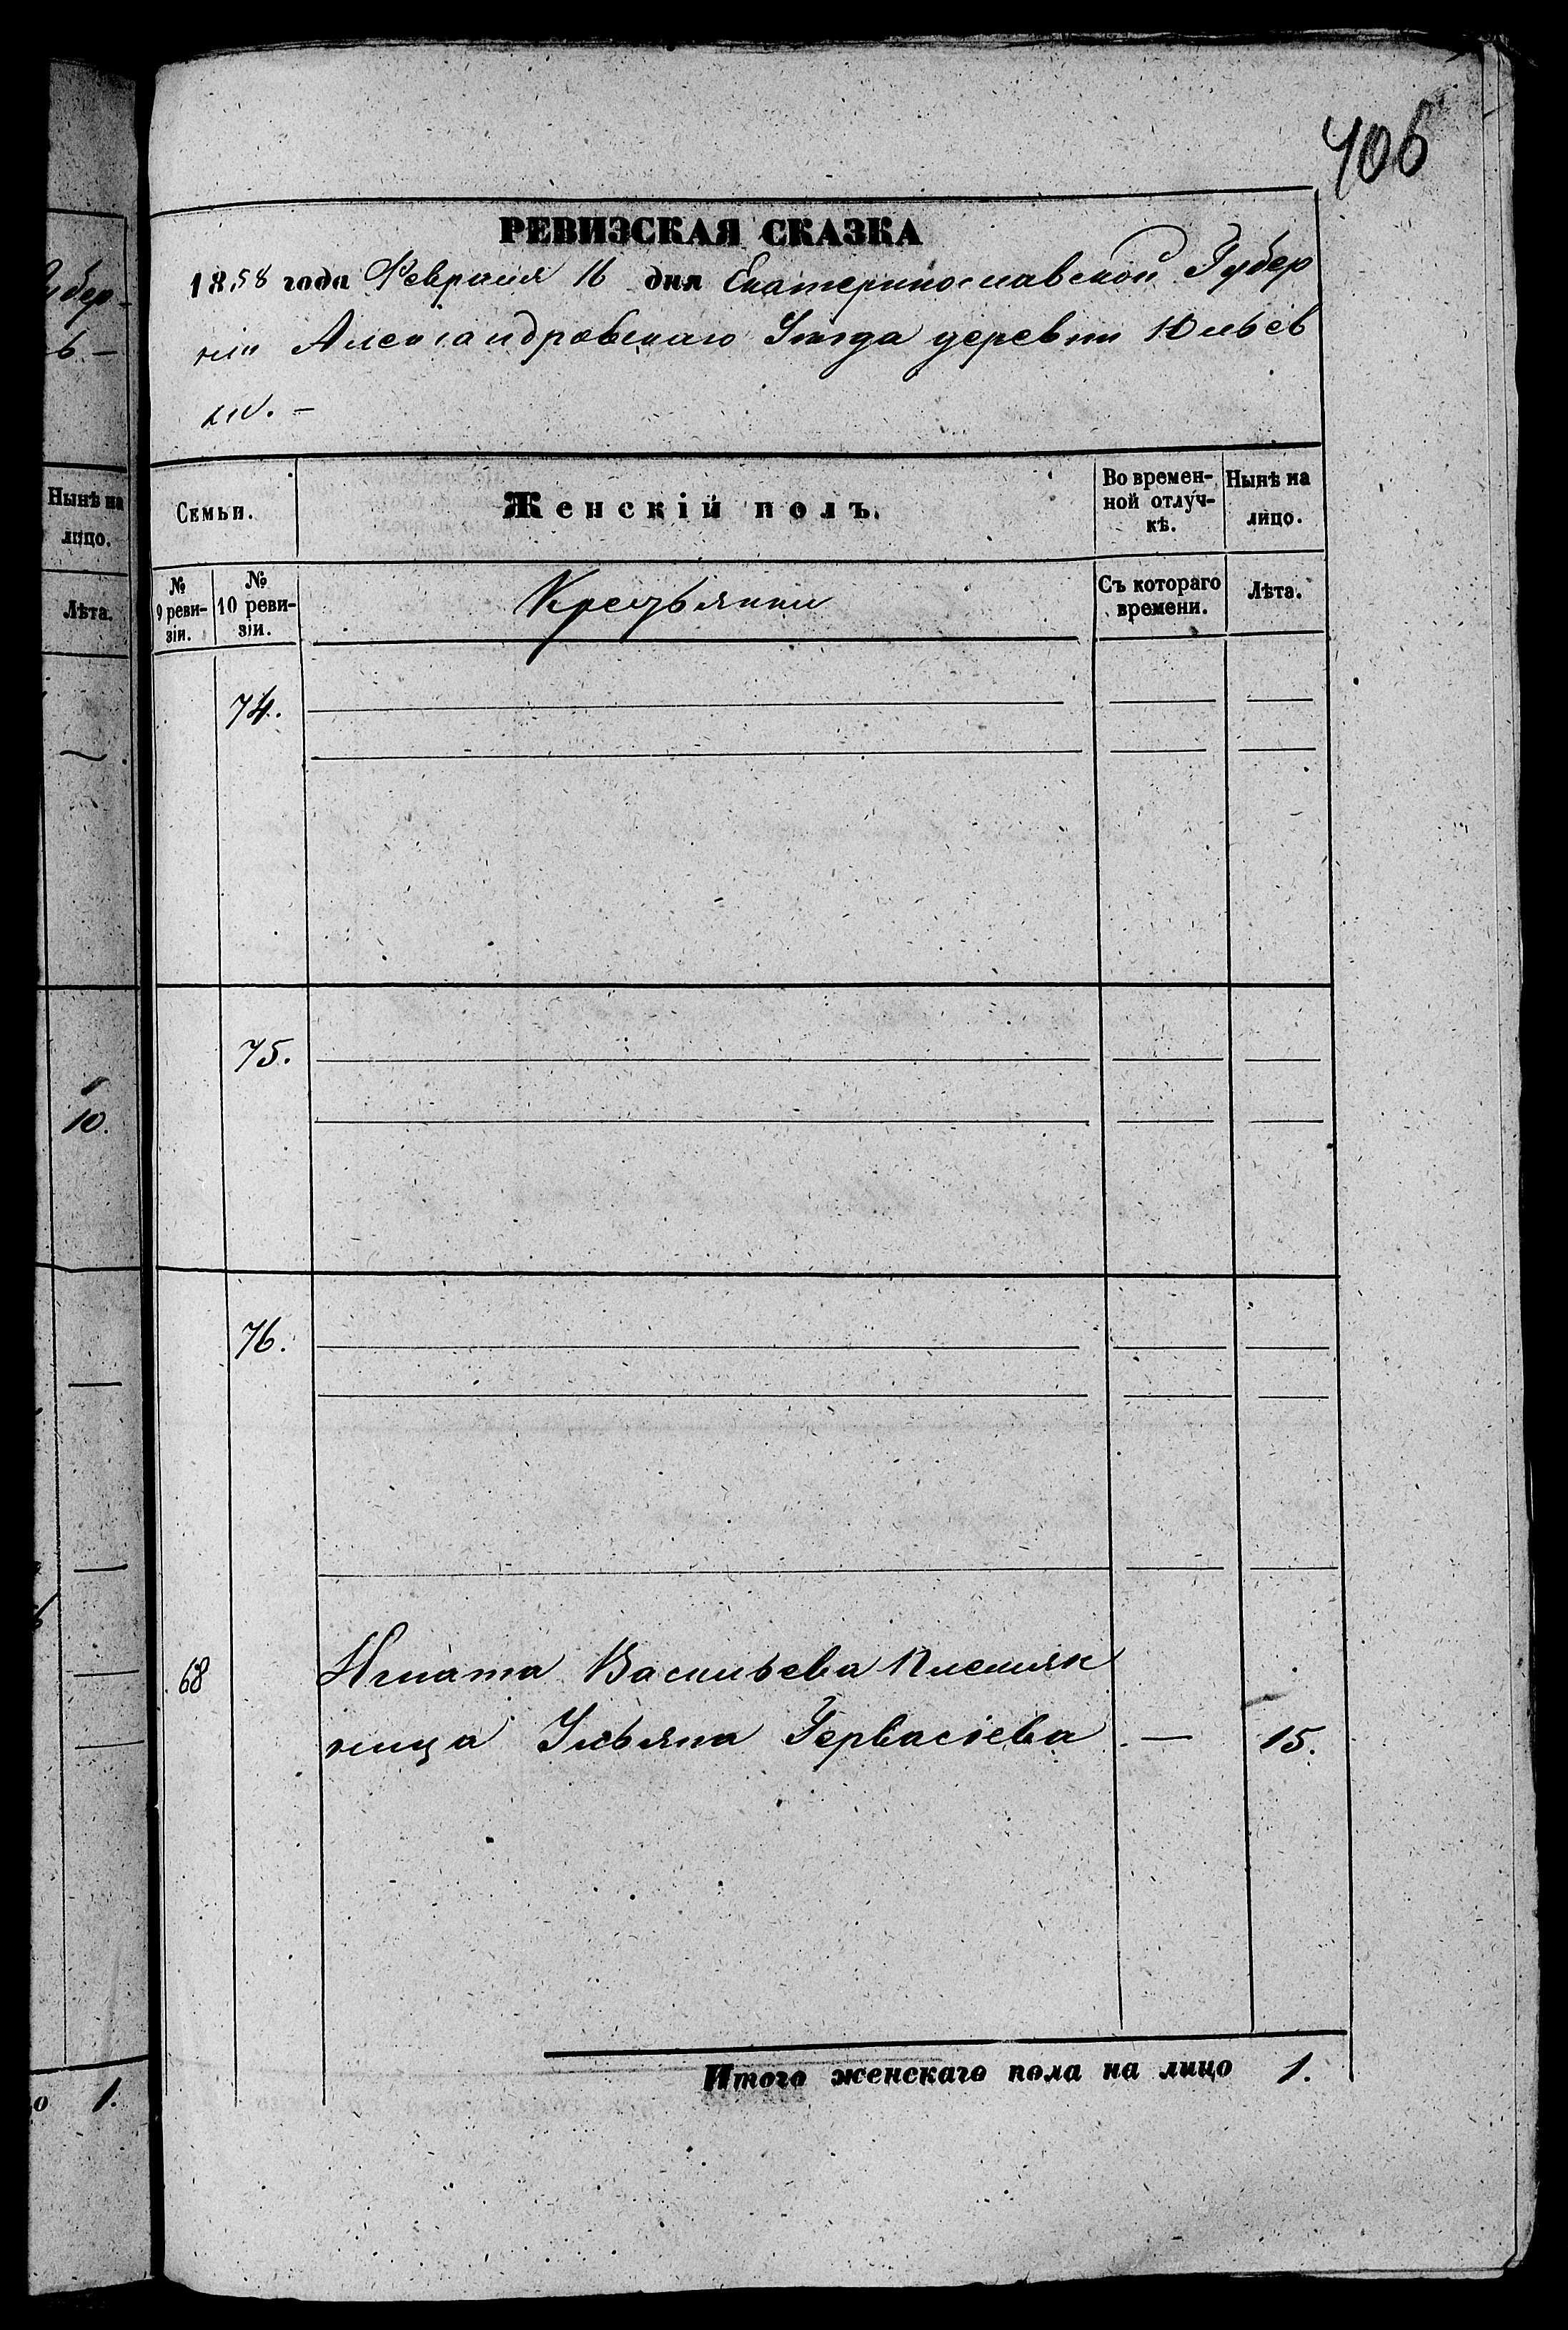 406
РЕВИЗСКАЯ СКАЗКА
1858 года Февраля 16 дня Екатеринославской Губер
ніи Александровскаго Уѣзда деревни Юльев
ки. –
Семьи.
Женскій полъ.
Во времен-
ной отлуч-
кѣ.
Нынѣ на
лицо.
№
9 реви-
зіи.
№
10 реви-
зіи.
Крестьянки
Съ котораго
времени.
Лѣта.
74.
75.
76.
68 Игната Васильева племян
ница Ульяна Гервасіева — 15.
Итого женскаго пола на лицо 1.
Нынѣ на
лицо.
Лѣта.
10.
1.